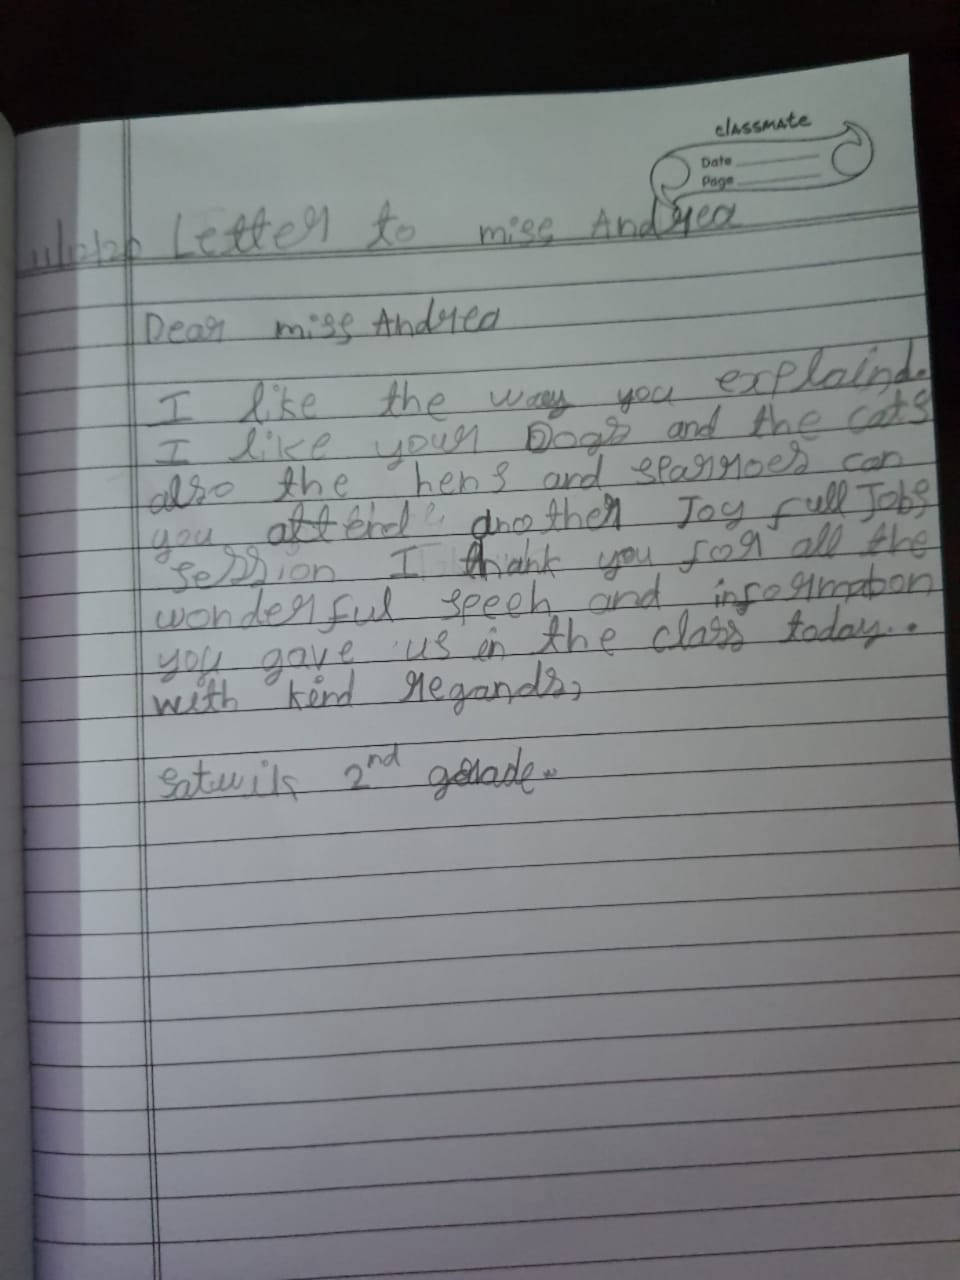 classmate
Date
Page
11/12/20 Letter to miss Andrea
Dear miss Andrea
I like the way you explaind.
I like your Dogs and the cats
also the hens and sparroes can
you attend another Joy full Jobs
session I thank you for all the
wonderful speeh and information
you gave us in the class today..
with kind regards,
Satwik 2nd grade.